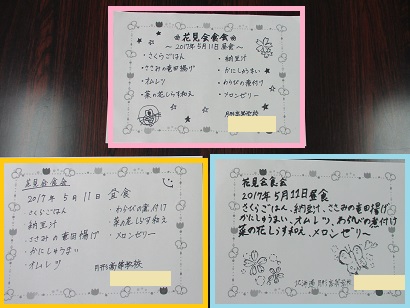 ❀花見会食会❀
〜2017年5月11日昼食〜
・さくらごはん
・ささみの竜田揚げ
・オムレツ
・菜の花しらす和え
・納豆汁
・かにしゅうまい
・わらびの煮付け
・メロンゼリー
月形高等学校
花見会食会
2017年 5月 11日 昼食
さくらごはん
納豆汁
ささみの竜田揚げ
かにしゅうまい
オムレツ
・わらびの煮付け
菜の花しらす和え
・メロンゼリー
月形高等学校
花見会食会
2017年5月11日昼食
さくらごはん、納豆汁、ささみの竜田揚げ
かにしゅうまい、オムレツ、わらびの煮付け
菜の花しらす和え、メロンゼリー
北海道 月形高等学校